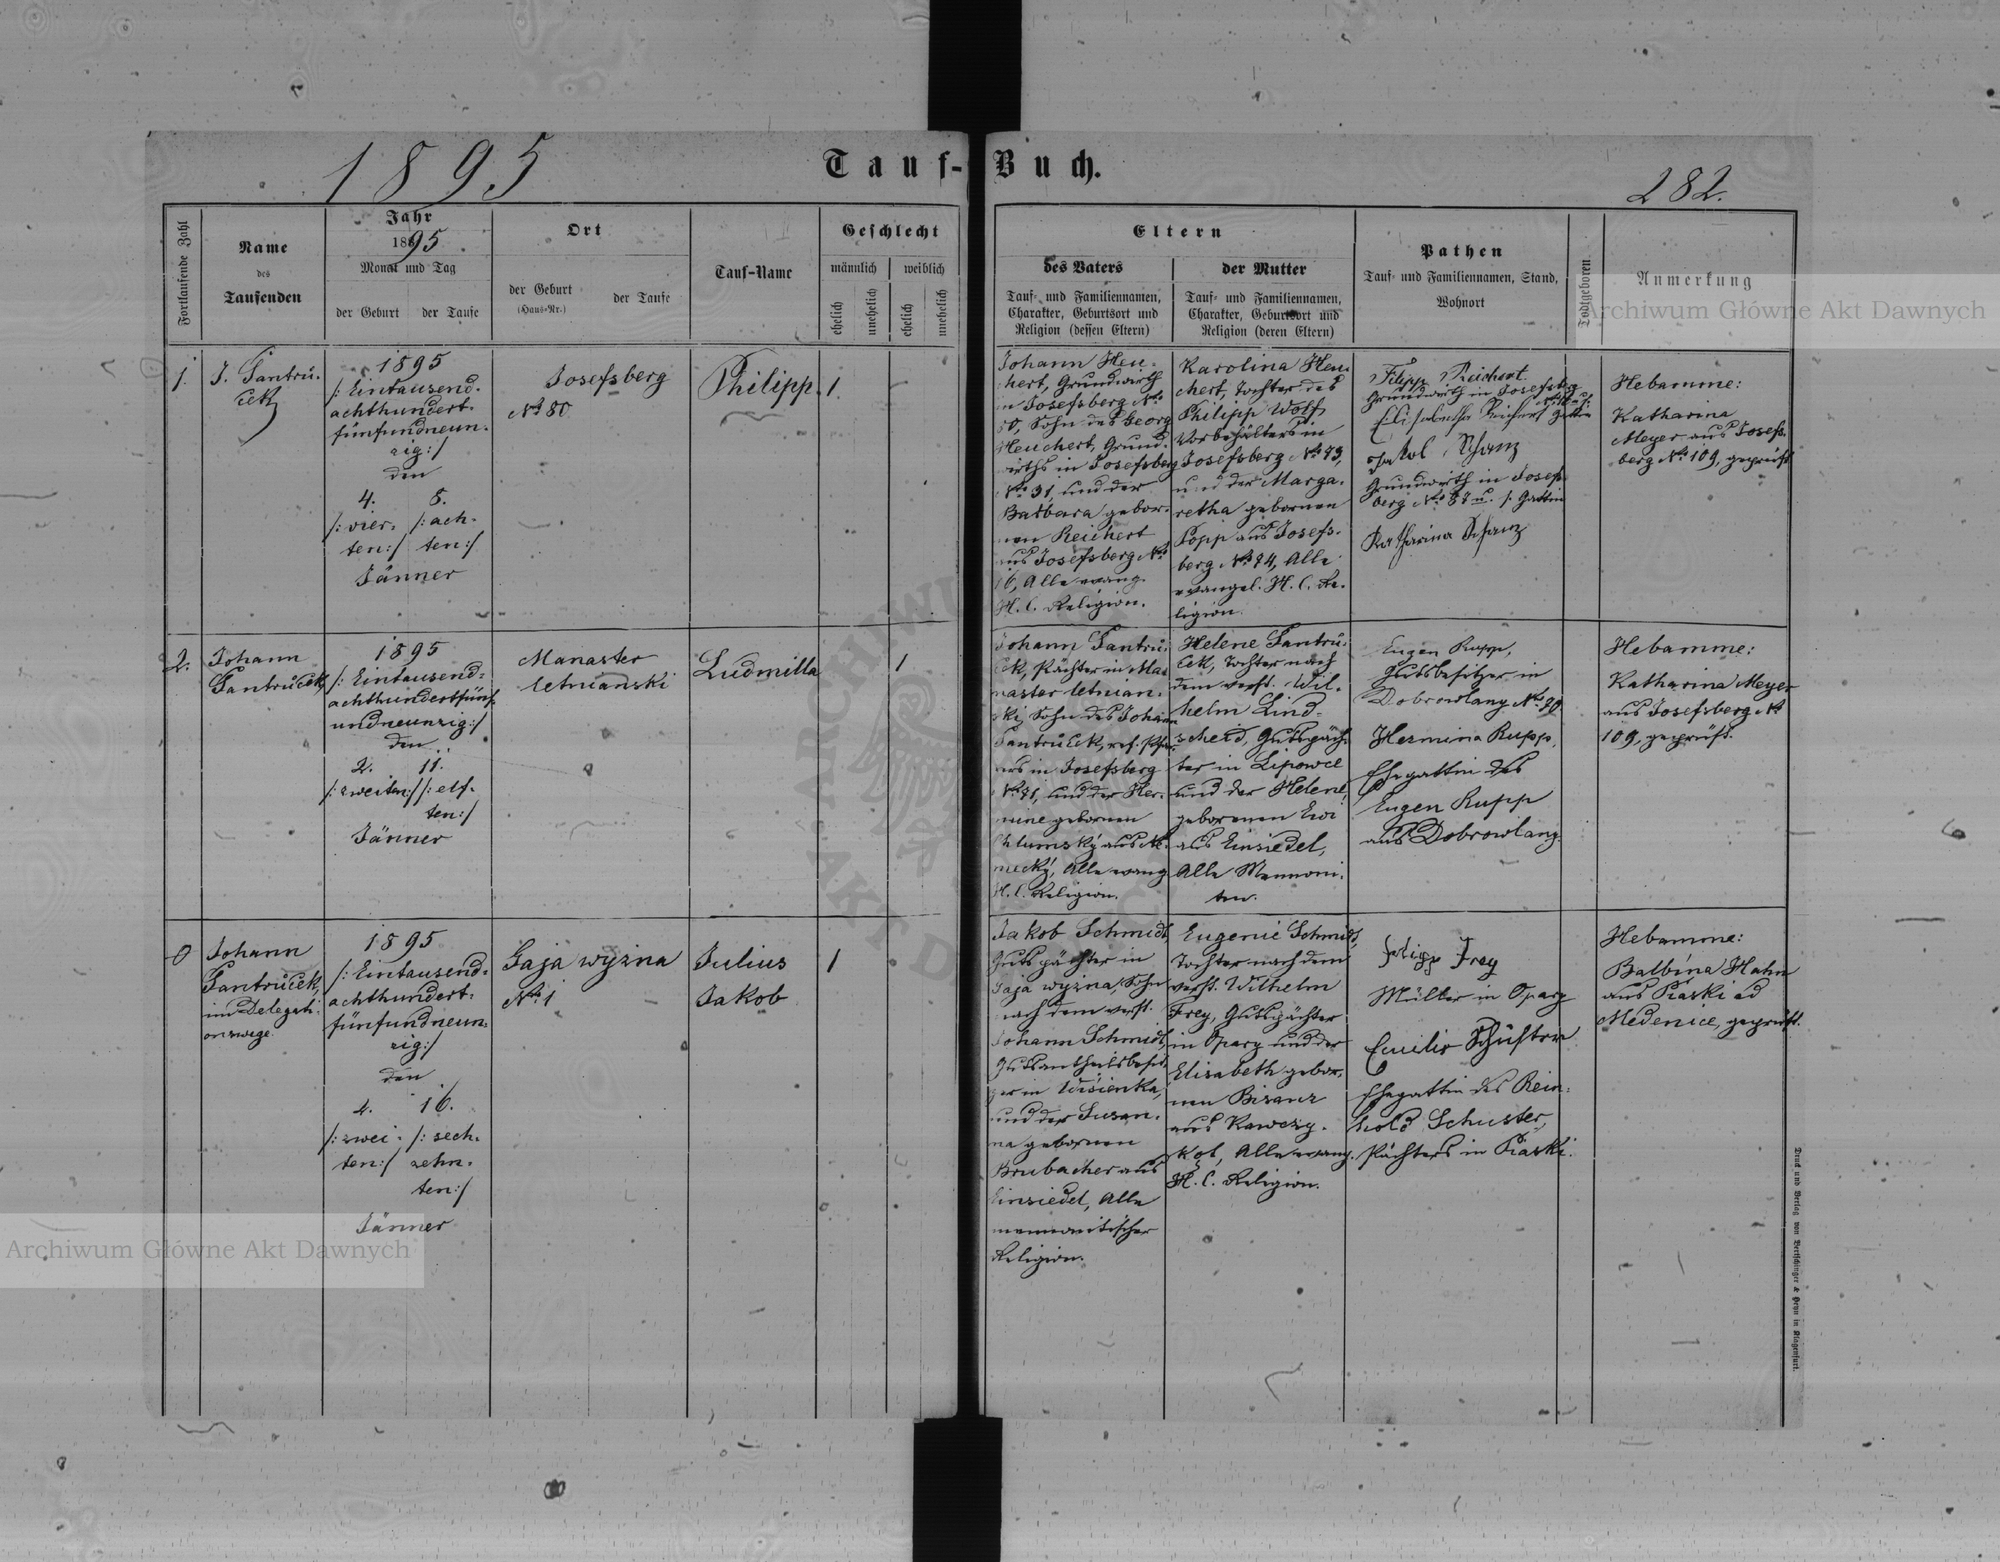 1895
Tauf-Buch.
282.
Fortlaufende Zahl
Name
des
Taufenden
Jahr
1895.
Monat und Tag
der Geburt
der Taufe
Ort
der Geburt
(Haus-Nr.)
der Taufe
Tauf-Name
Geschlecht
männlich
weiblich
ehelich
unehelich
ehelich
unehelich
Eltern
des Vaters
Tauf- und Familiennamen,
Charakter, Geburtsort und
Religion (dessen Eltern)
der Mutter
Tauf- und Familiennamen,
Charakter, Geburtsort und
Religion (deren Eltern)
Pathen
Tauf- und Familiennamen, Stand,
Wohnort
Todtgeboren
Anmerkung
1.
J. Jantrů-
ček
1895
/: Eintausend-
achthundert-
fünfundneun-
zig :/
den
4. 8.
/: vier- /: ach-
ten :/ ten :/
Jänner
Josefsberg
No 80
Philipp
1.
Johann Heu-
chert, Grundwirth
in Josefsberg No
80, Sohn des Georg
Heuchert, Grund-
wirths in Josefsberg
No 31, und der
Barbara gebor-
nen Reichert
aus Josefsberg No
16, Alle evang.
H. C. Religion.
Karolina Heu-
chert, Tochter des
Philipp Wolf,
Vorbehälters in
Josefsberg No 73,
und der Marga-
retha gebornen
Popp aus Josefs-
berg No 74, Alle
evangel. H. C. Re-
ligion.
Filipp Reichert
Grundwirth in Josefsberg
Elisabetha Reichert Gattin
Jakob Schanz
Grundwirth in Josefs-
berg No 87 u. s. Gattin
Katharina Schanz
Hebamme:
Katharina
Meyer aus Josefs-
berg No 109, geprüft
2.
Johann
Jantrůček
1895
/: Eintausend-
achthundertfünf-
undneunzig :/
den
2. 11.
/: zweiten :/ /: elf-
ten :/
Jänner
Manaster
letnianski
Ludmilla
1
Johann Jantrů-
ček, Pächter in Ma-
naster letnian-
ski, Sohn des Johann
Jantrůček, ref. Pfar-
rers in Josefsberg
No 71, und der Her-
mine gebornen
Chlumský aus
Alle evang.
H. C. Religion.
Helene Jantrů-
ček, Tochter nach
dem verst. Wil-
helm Lind-
scheid, Gutspäch-
ter in Lipowce
und der Helene,
gebornenen Ewi
aus Einsiedel,
Alle Mennoni-
ten.
Eugen Rupp,
Gutsbesitzer in
Dobrowlany No 20
Hermina Rupp,
Ehegattin des
Eugen Rupp
aus Dobrowlany.
Hebamme:
Katharina Meyer
aus Josefsberg No
109, geprüft.
0
Johann
Jantrůček,
im Delegati-
onswege.
1895
/: Eintausend-
achthundert-
fünfundneun-
zig :/
den
2. 16.
/: zwei- /: sech-
ten :/ zehn-
ten :/
Jänner
Gaja wyżna
No 1
Julius
Jakob
1
Jakob Schmidt,
Gutspächter in
Gaja wyżna, Sohn
nach dem verst.
Johann Schmidt,
Gutsantheilsbesit-
zer in Wisienka,
und der Susan-
na gebornen
Brubacher aus
Einsiedel, Alle
mennonitischer
Religion.
Eugenie Schmidt,
Tochter nach dem
verst. Wilhelm
Frey, Gutspächter
in Opary und der
Elisabeth gebor-
nen Bisanz
aus Rawczy-
kot, Alle evang.
H. C. Religion.
Filipp Frey
Müller in Opary
Emilie Schuster
Ehegattin des Rein-
hold Schuster,
Pächters in Piaski.
Hebamme:
Balbina Hahn
aus Piaski ad
Medenice, geprüft.
Druck und Verlag von Bertschinger & Heyn in Klagenfurt.
Archiwum Główne Akt Dawnych
Archiwum Główne Akt Dawnych